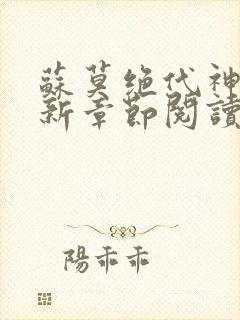 蘇莫絕代神
新章節閱讀
陽乖乖